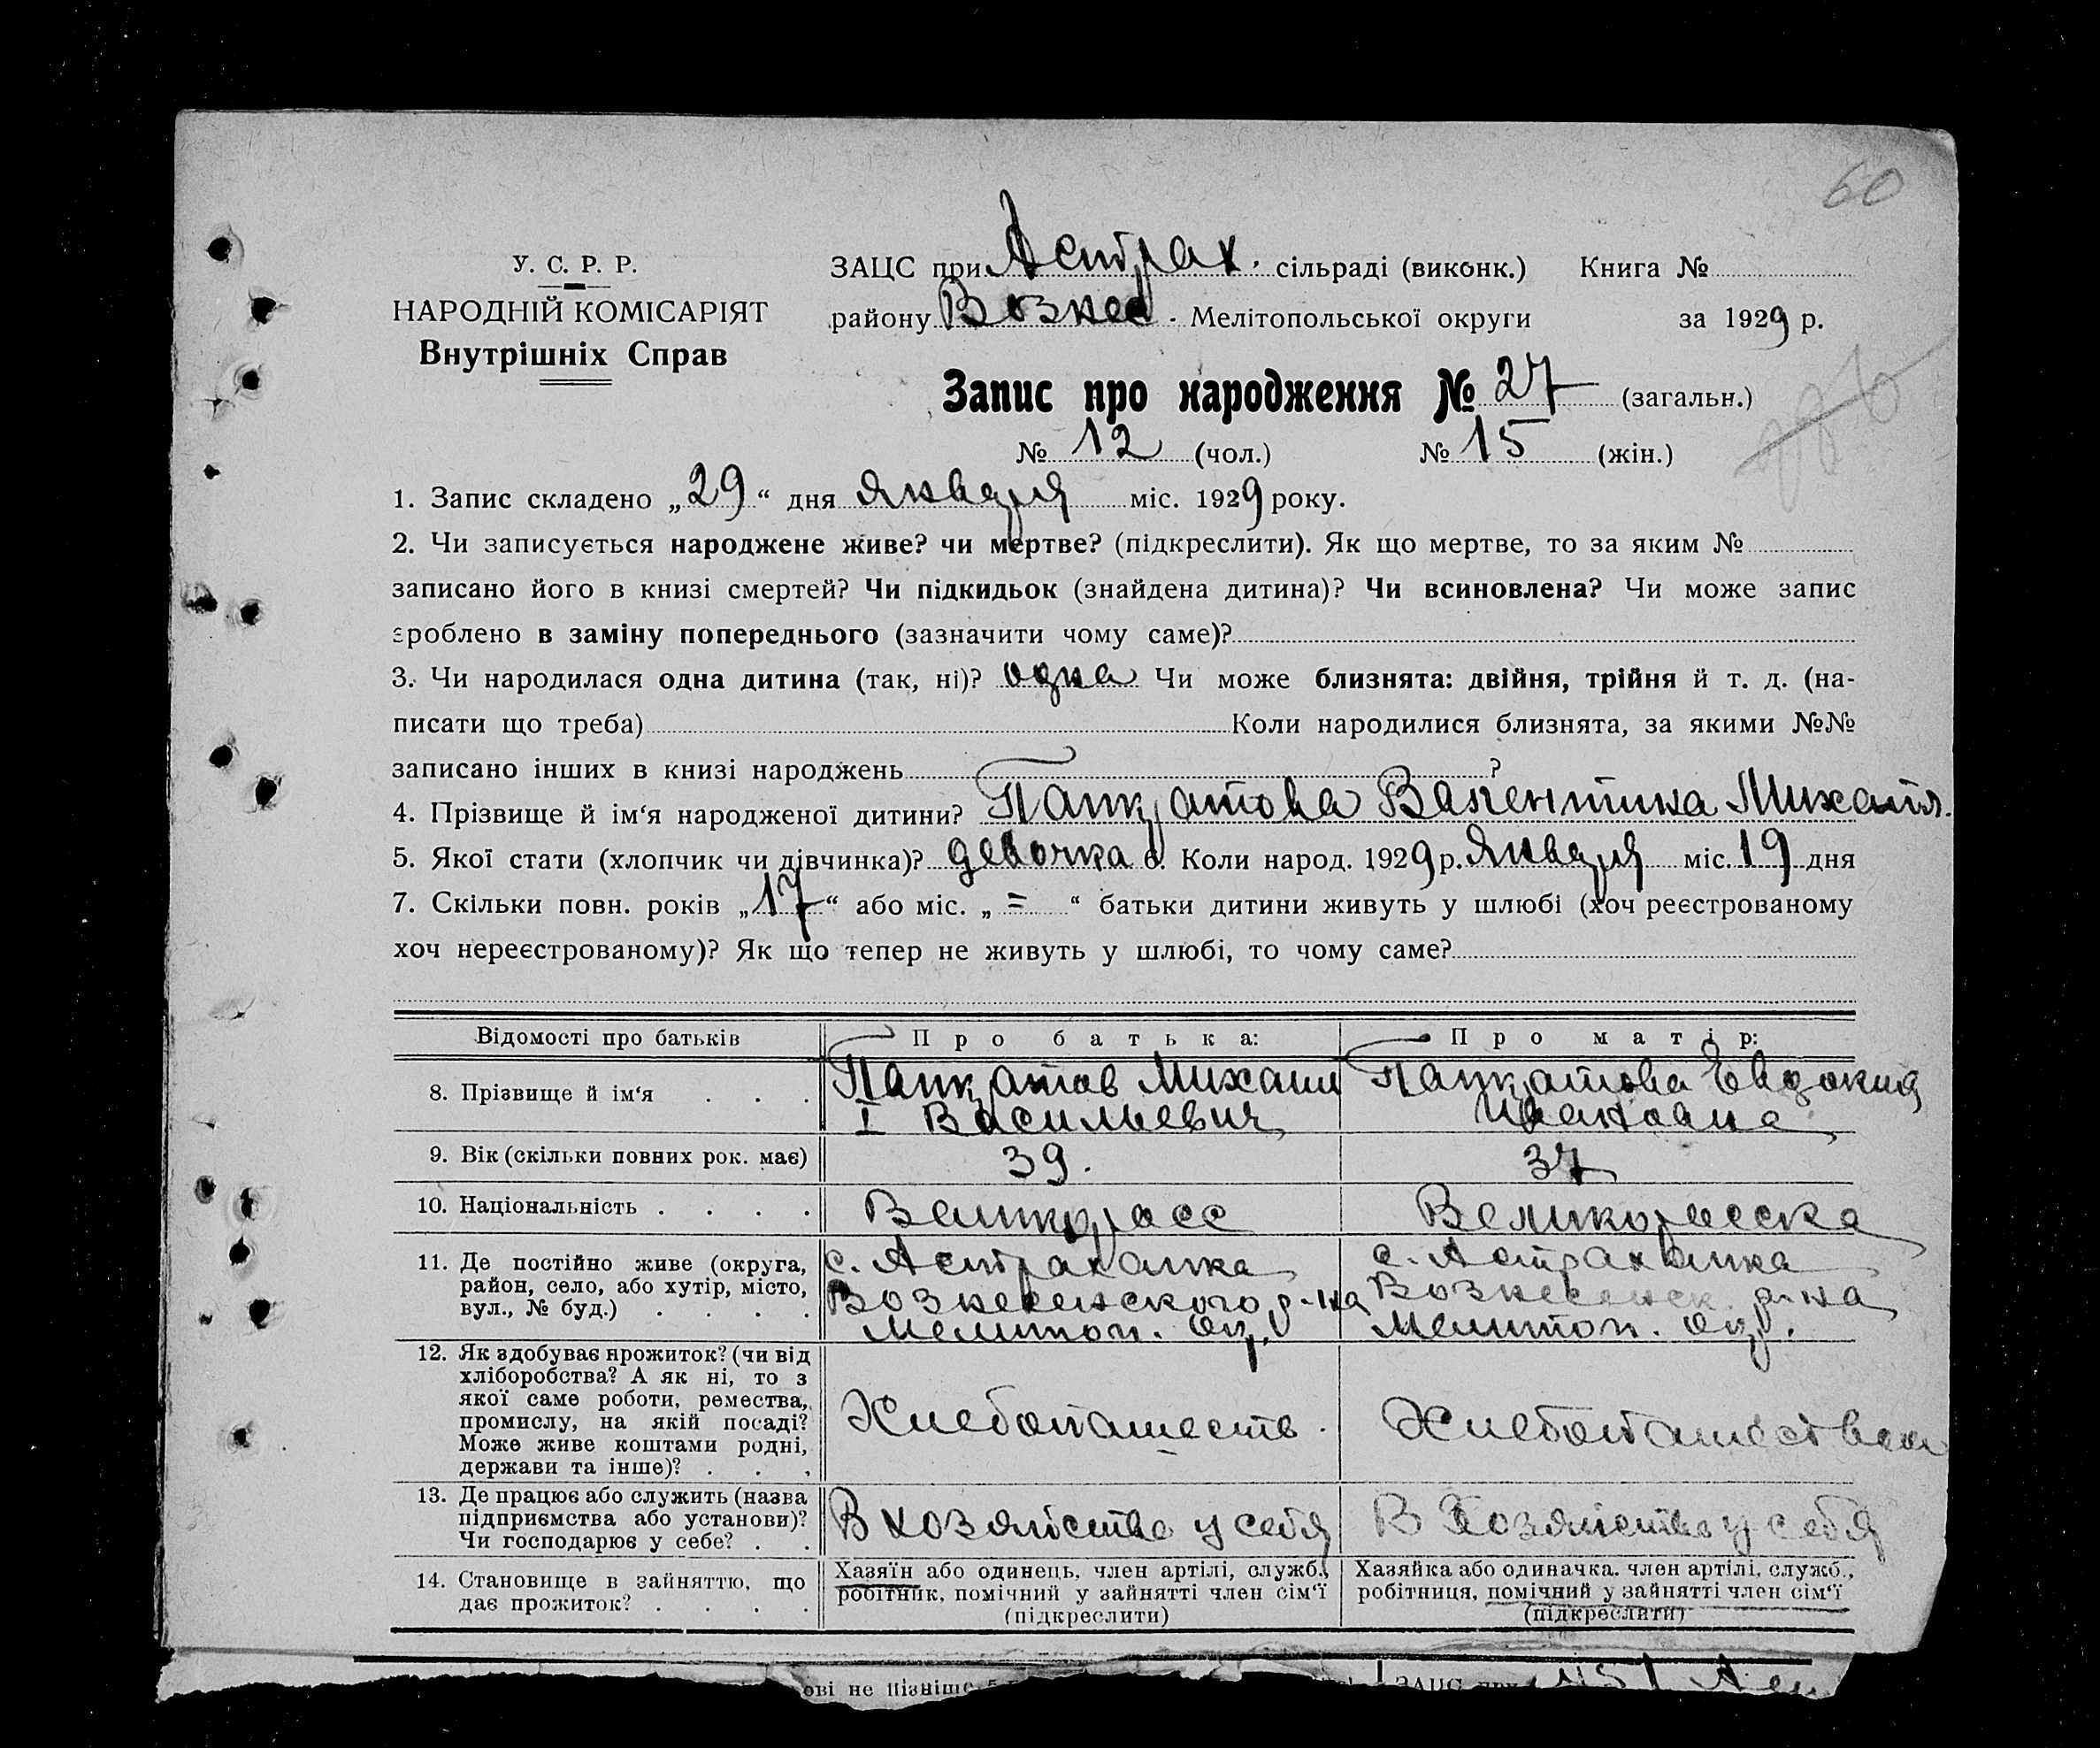 60
У. С. Р. Р.
НАРОДНІЙ КОМІСАРІЯТ
Внутрішніх Справ
ЗАЦС при Астрах. сільраді (виконк.) Книга №
району Вознес. Мелітопольської округи за 1929 р.
Запис про народження № 27 (загальн.)
№ 12 (чол.) № 15 (жін.)
1. Запис складено „29“ дня Января міс. 1929 року.
2. Чи записується народжене живе? чи мертве? (підкреслити). Як що мертве, то за яким №
записано його в книзі смертей? Чи підкидьок (знайдена дитина)? Чи всиновлена? Чи може запис
зроблено в заміну попереднього (зазначити чому саме)?
3. Чи народилася одна дитина (так, ні)? одна Чи може близнята: двійня, трійня й т. д. (на-
писати що треба) Коли народилися близнята, за якими №№
записано інших в книзі народжень ?
4. Прізвище й ім‘я народженої дитини? Панкратова Валентина Михайл.
5. Якої стати (хлопчик чи дівчинка)? девочка 6. Коли народ. 1929 р. Января міс. 19 дня
7. Скільки повн. років „17“ або міс. „ = “ батьки дитини живуть у шлюбі (хоч реєстрованому
хоч нереєстрованому)? Як що тепер не живуть у шлюбі, то чому саме?
Відомості про батьків Про батька: Про матір:
8. Прізвище й ім‘я . . . Панкратов Михаил I Васильевич Панкратова Евдокия Ивановна
9. Вік (скільки повних рок. має) 39. 37
10. Національність . . . . Великоросс Великоросска
11. Де постійно живе (округа, с. Астраханка с. Астраханка
район, село, або хутір, місто, Вознесенского р-на Вознесенск. р-на
вул., № буд.) . . . . Мелитоп. окр. Мелитоп. окр.
12. Як здобуває прожиток? (чи від
хліборобства? А як ні, то з
якої саме роботи, ремества,
промислу, на якій посаді? Хлебопашеств. Хлебопашеством
Може живе коштами родні,
держави та інше)? . . .
13. Де працює або служить (назва
підприємства або установи)? В хозяйстве у себя В хозяйстве у себя
Чи господарює у себе? . .
14. Становище в зайняттю, що Хазяїн або одинець, член артілі, служб., Хазяйка або одиначка. член артілі, служб.,
дає прожиток? . . . . робітник, помічний у зайнятті член сім‘ї робітниця, помічний у зайнятті член сім‘ї
(підкреслити) (підкреслити)
ові не пізніше ЗАЦС при